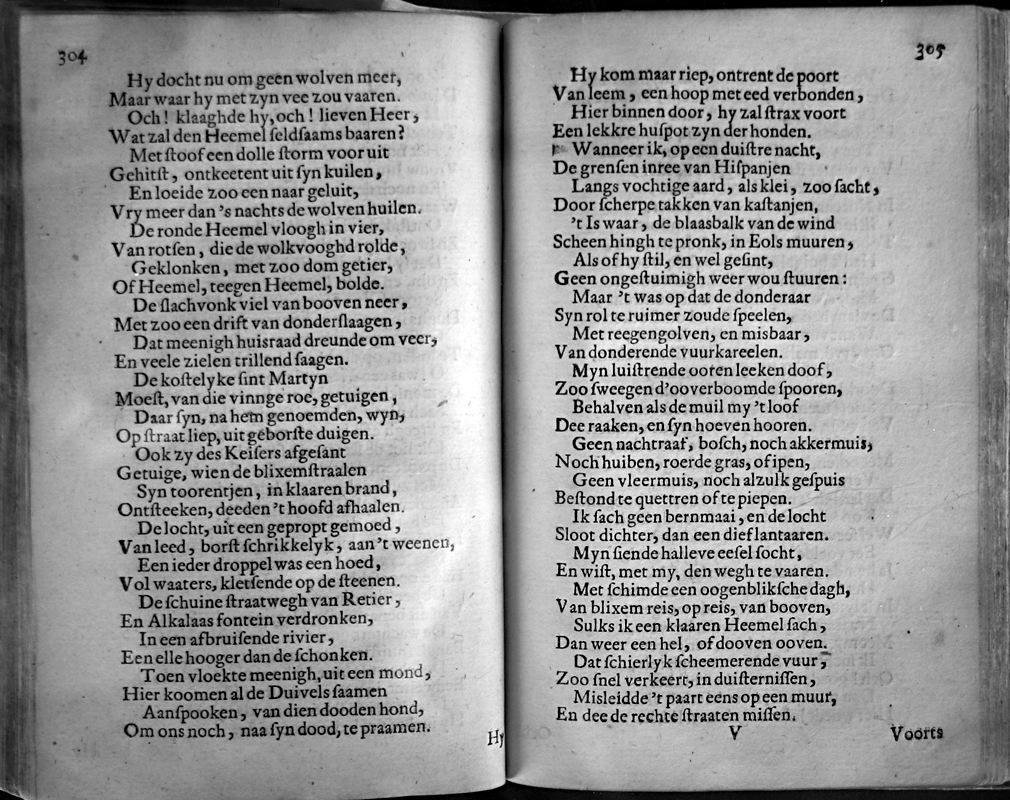 304
Hy docht nu om geen wolven meer,
Maar waar hy met zyn vee zou vaaren.
Och! klaaghde hy, och! lieven Heer,
Wat zal den Heemel ſeldſaams baaren?
Met ſtoof een dolle ſtorm voor uit
Gehitſt, ontkeetent uit ſyn kuilen,
En loeide zoo een naar geluit,
Vry meer dan 's nachts de wolven huilen.
De ronde Heemel vloogh in vier,
Van rotſen, die de wolkvooghd rolde,
Geklonken, met zoo dom getier,
Of Heemel, teegen Heemel, bolde.
De ſlachvonk viel van booven neer,
Met zoo een drift van donderſlaagen,
Dat meenigh huisraad dreunde om veer,
En veele zielen trillend ſaagen.
De koſtelyke ſint Martyn
Moeſt, van die vinnge roe, getuigen,
Daar ſyn, na hem genoemden, wyn,
Op ſtraat liep, uit geborſte duigen.
Ook zy des Keiſers afgeſant
Getuige, wien de blixemſtraalen
Syn toorentjen, in klaaren brand,
Ontſteeken, deeden 't hoofd afhaalen.
De locht, uit een gepropt gemoed,
Van leed, borſt ſchrikkelyk, aan 't weenen,
Een ieder droppel was een hoed,
Vol waaters, kletſende op de ſteenen.
De ſchuine ſtraatwegh van Retier,
En Alkalaas fontein verdronken,
In een afbruiſende rivier,
Een elle hooger dan de ſchonken.
Toen vloekte meenigh, uit een mond,
Hier koomen al de Duivels ſaamen
Aanſpooken, van dien dooden hond,
Om ons noch, naa ſyn dood, te praamen.
Hy
305
Hy kom maar riep, ontrent de poort
Van leem, een hoop met eed verbonden,
Hier binnen door, hy zal ſtrax voort
Een lekkre huſpot zyn der honden.
Wanneer ik, op een duiſtre nacht,
De grenſen inree van Hiſpanjen
Langs vochtige aard, als klei, zoo ſacht,
Door ſcherpe takken van kaſtanjen,
't Is waar, de blaasbalk van de wind
Scheen hingh te pronk, in Eols muuren,
Als of hy ſtil, en wel geſint,
Geen ongeſtuimigh weer wou ſtuuren:
Maar 't was op dat de donderaar
Syn rol te ruimer zoude ſpeelen,
Met reegengolven, en misbaar,
Van donderende vuurkareelen.
Myn luiſtrende ooren leeken doof,
Zoo ſweegen d'ooverboomde ſpooren,
Behalven als de muil my 't loof
Dee raaken, en ſyn hoeven hooren.
Geen nachtraaf, boſch, noch akkermuis,
Noch huiben, roerde gras, of ipen,
Geen vleermuis, noch alzulk geſpuis
Beſtond te quettren of te piepen.
Ik ſach geen bernmaai, en de locht
Sloot dichter, dan een dieflantaaren.
Myn ſiende halleve eeſel ſocht,
En wiſt, met my, den wegh te vaaren.
Met ſchimde een oogenblikſche dagh,
Van blixem reis, op reis, van booven,
Sulks ik een klaaren Heemel ſach,
Dan weer een hel, of dooven ooven.
Dat ſchierlyk ſcheemerende vuur,
Zoo ſnel verkeert, in duiſterniſſen,
Misleidde 't paart eens op een muur,
En dee de rechte ſtraaten miſſen.
V
Voorts